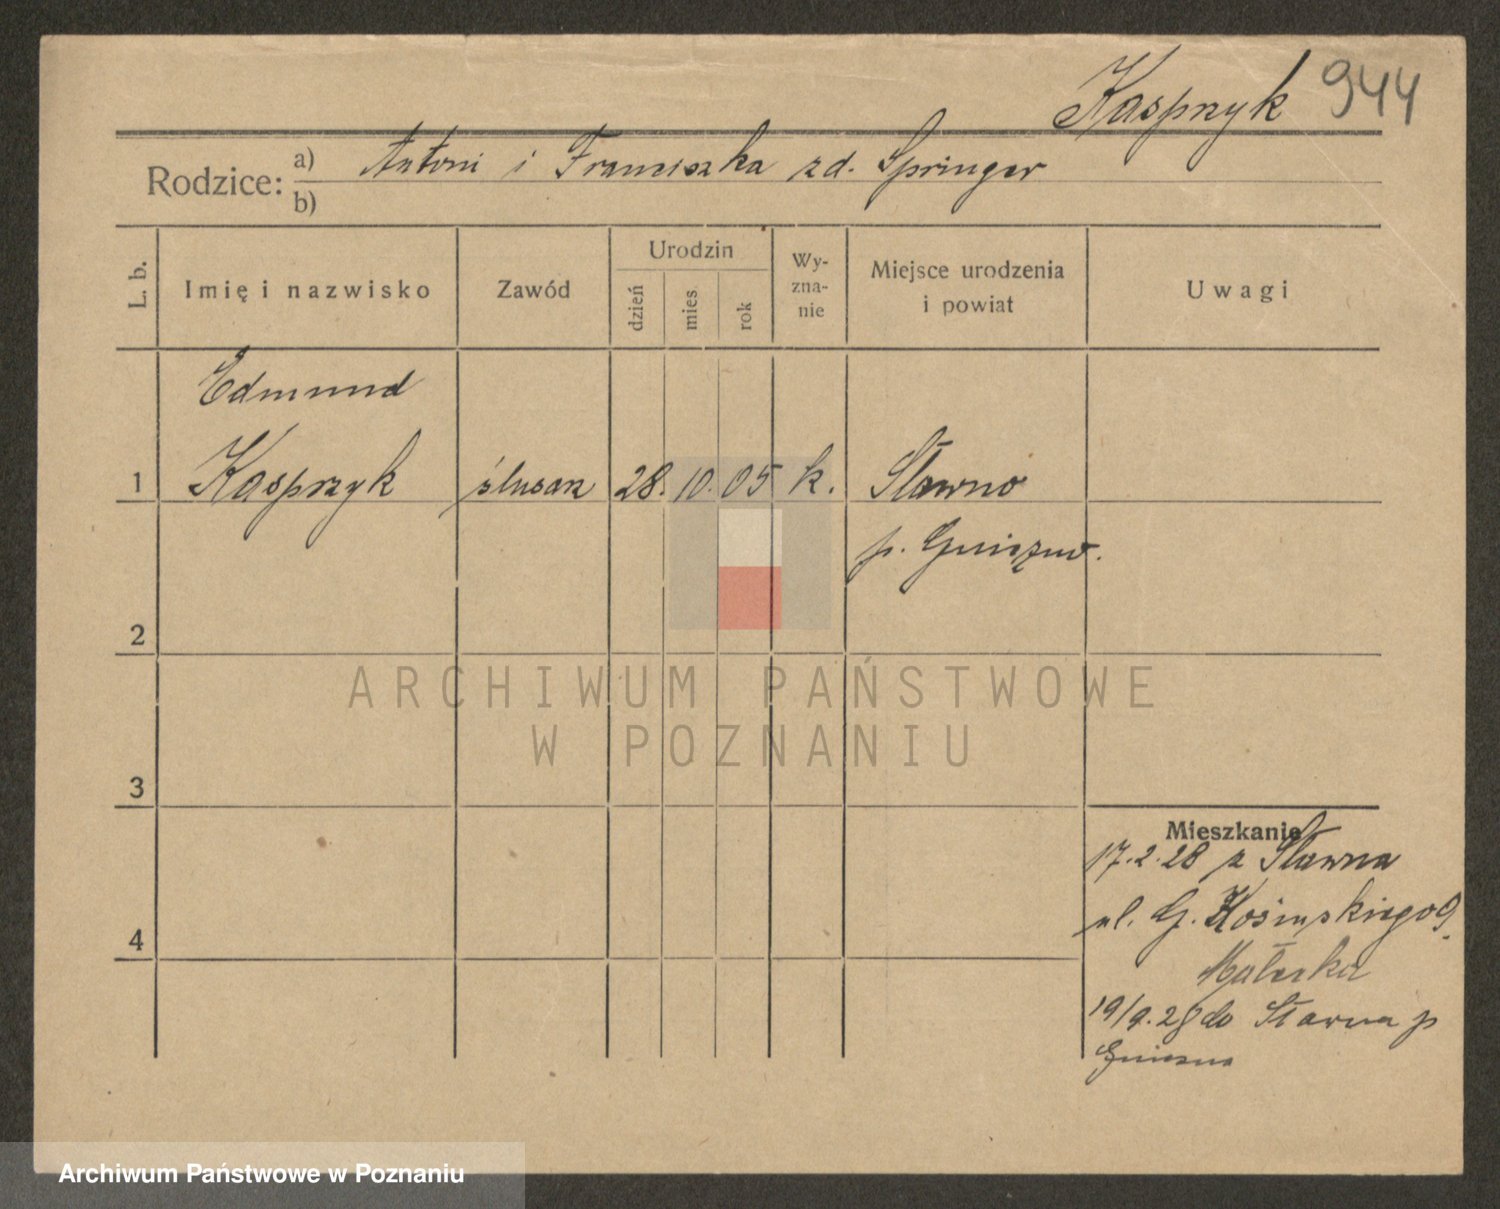 Kasprzyk 944
Rodzice: a) Antoni i Franciszka zd. Springer
b)
L. b.
Imię i nazwisko
Zawód
Urodzin
dzień
mies
rok
Wy-
zna-
nie
Miejsce urodzenia
i powiat
Uwagi
Edmund
1 Kasprzyk ślusarz 28. 10. 05 k. Sławno
p. Gniezno.
2
ARCHIWUM PAŃSTWOWE
W POZNANIU
3
Mieszkanie
17.2.28 z Sławna
ul. G. Kosińskiego 9.
4
Matuska
19/9.28 do Sławna p
Gniezna
Archiwum Państwowe w Poznaniu